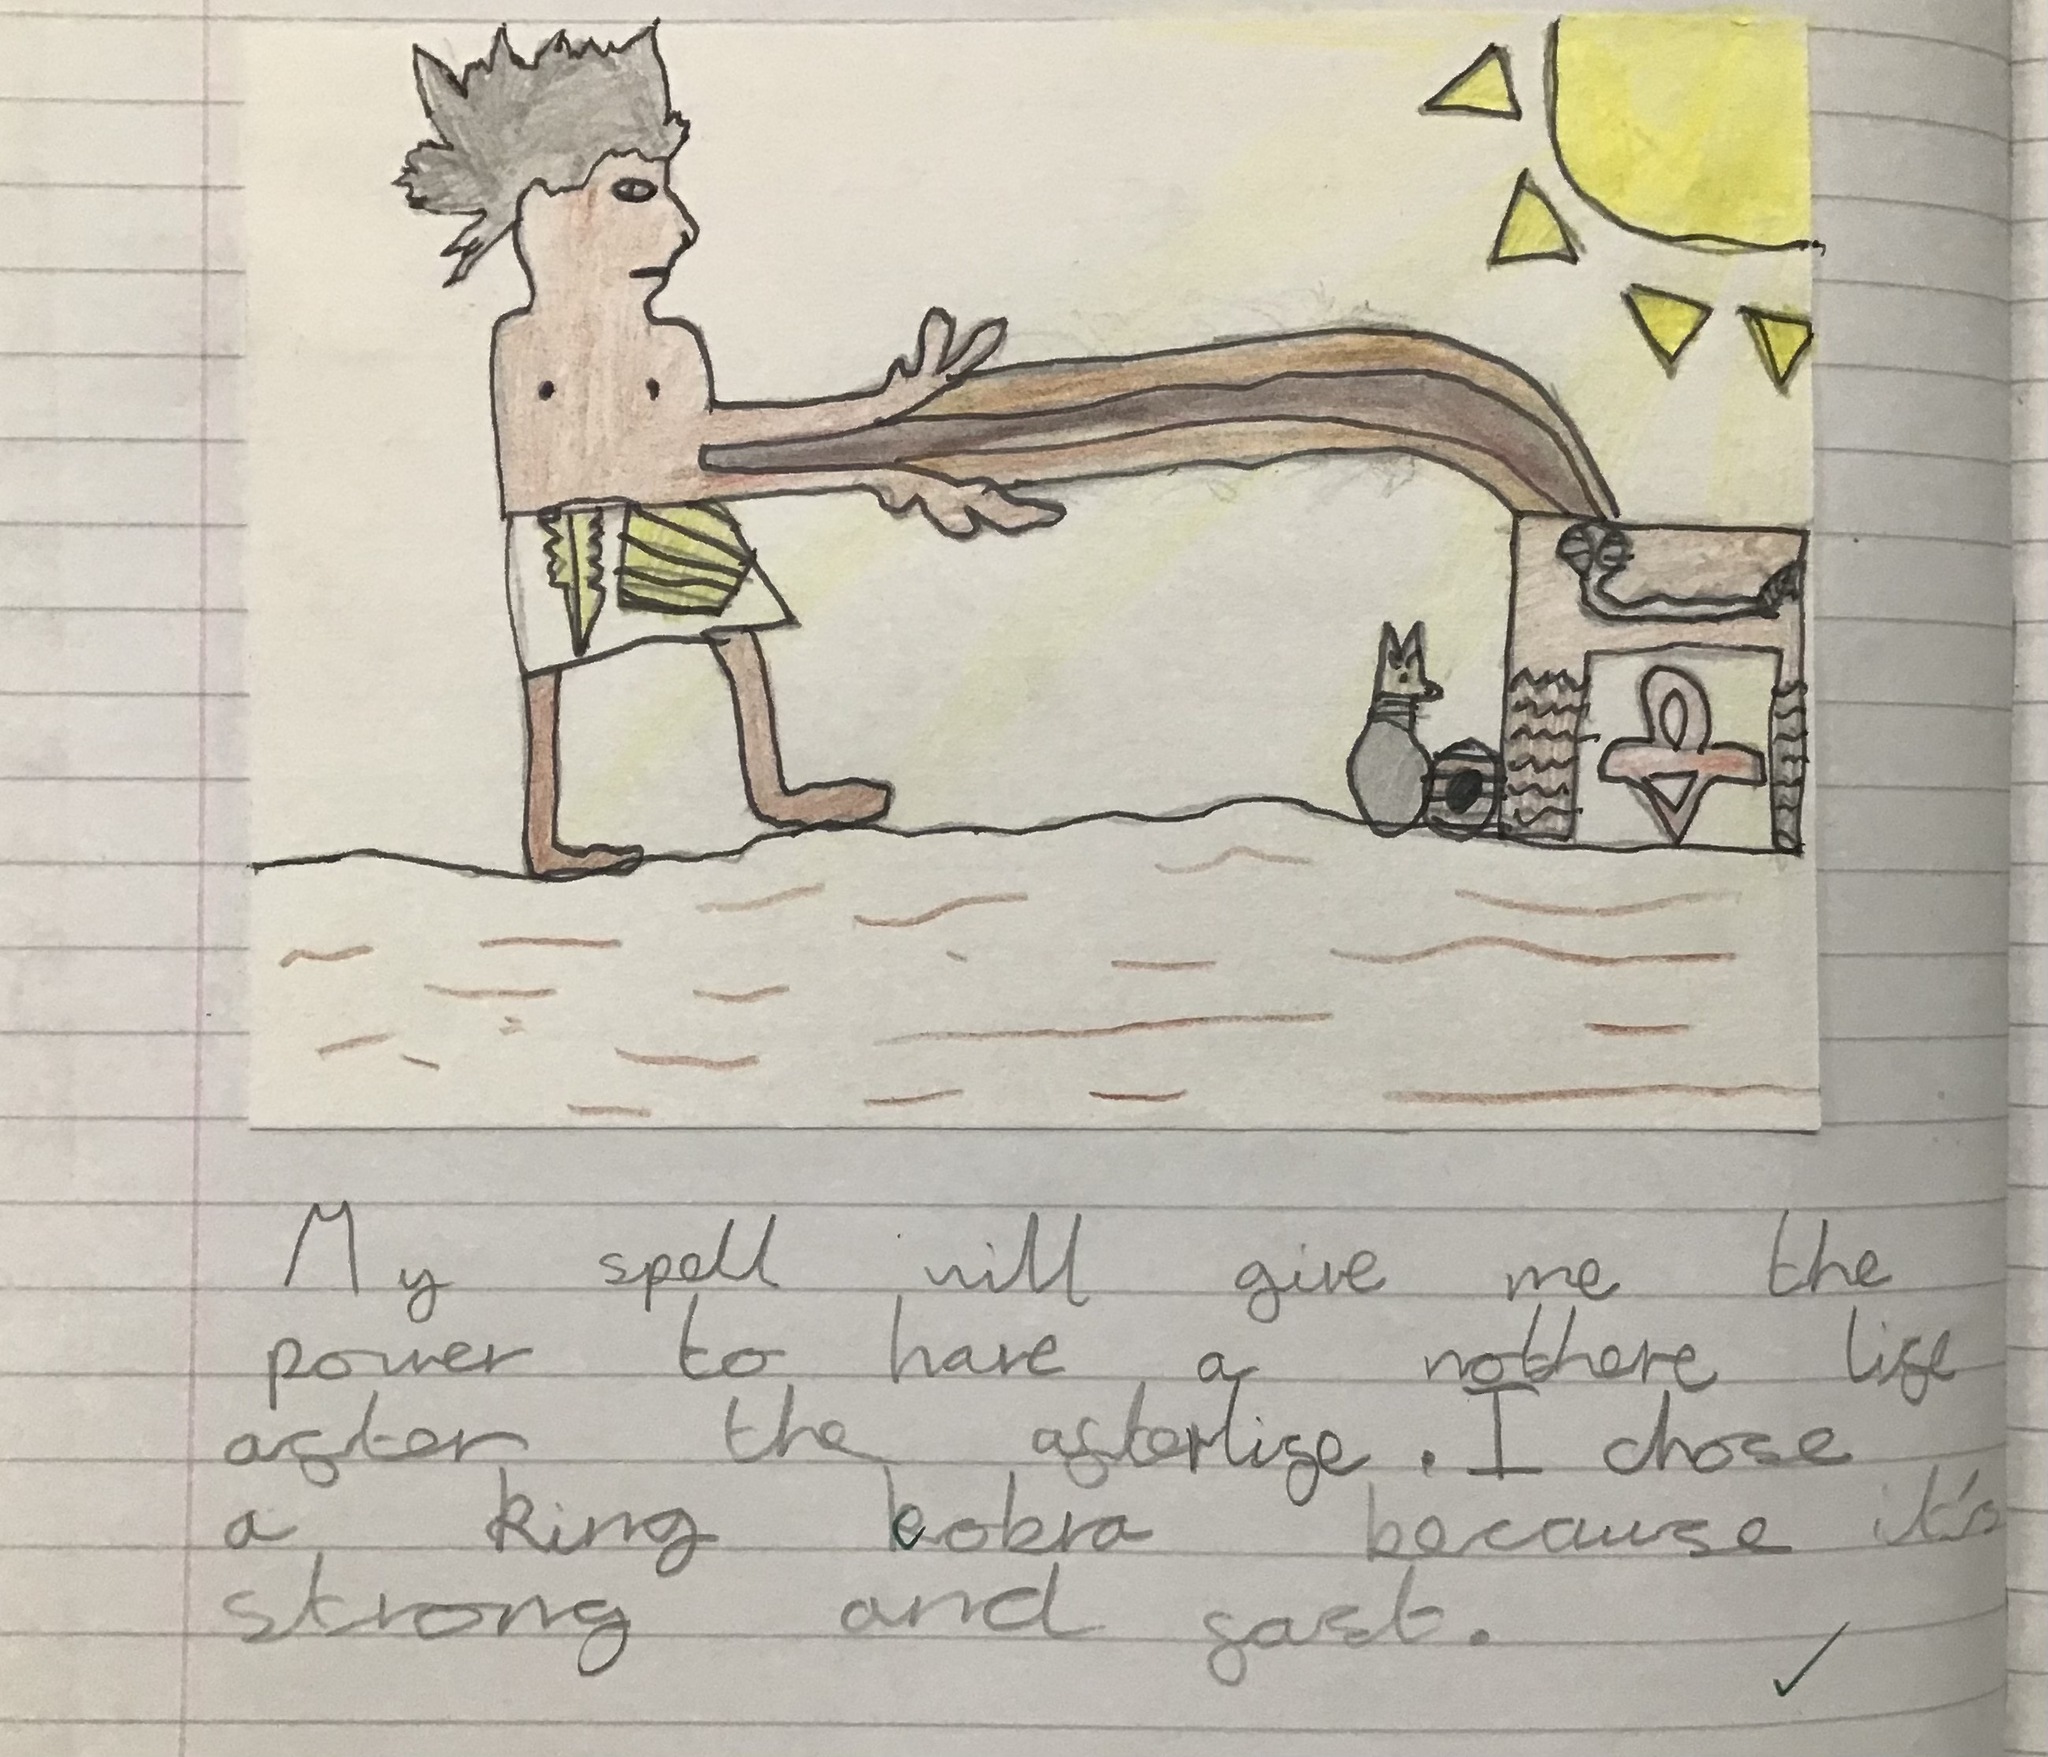 My spell will give me the
power to have a nothere life
after the afterlife. I chose
a king cobra because it's
strong and fast.